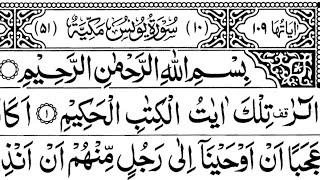 اٰیَاتُهَا ۱۰۹ (۱۰) سُوْرَةُ يُوْنُسَ مَكِّيَّةٌ (۵۱)
بِسْمِ اللّٰهِ الرَّحْمٰنِ الرَّحِيْمِ
الٓرٰ ࣞ تِلْكَ اٰيٰتُ الْكِتٰبِ الْحَكِيْمِ ۝۱ اَكَا
عَجَبًا اَنْ اَوْحَيْنَاۤ اِلٰى رَجُلٍ مِّنْهُمْ اَنْ اَنْذِ